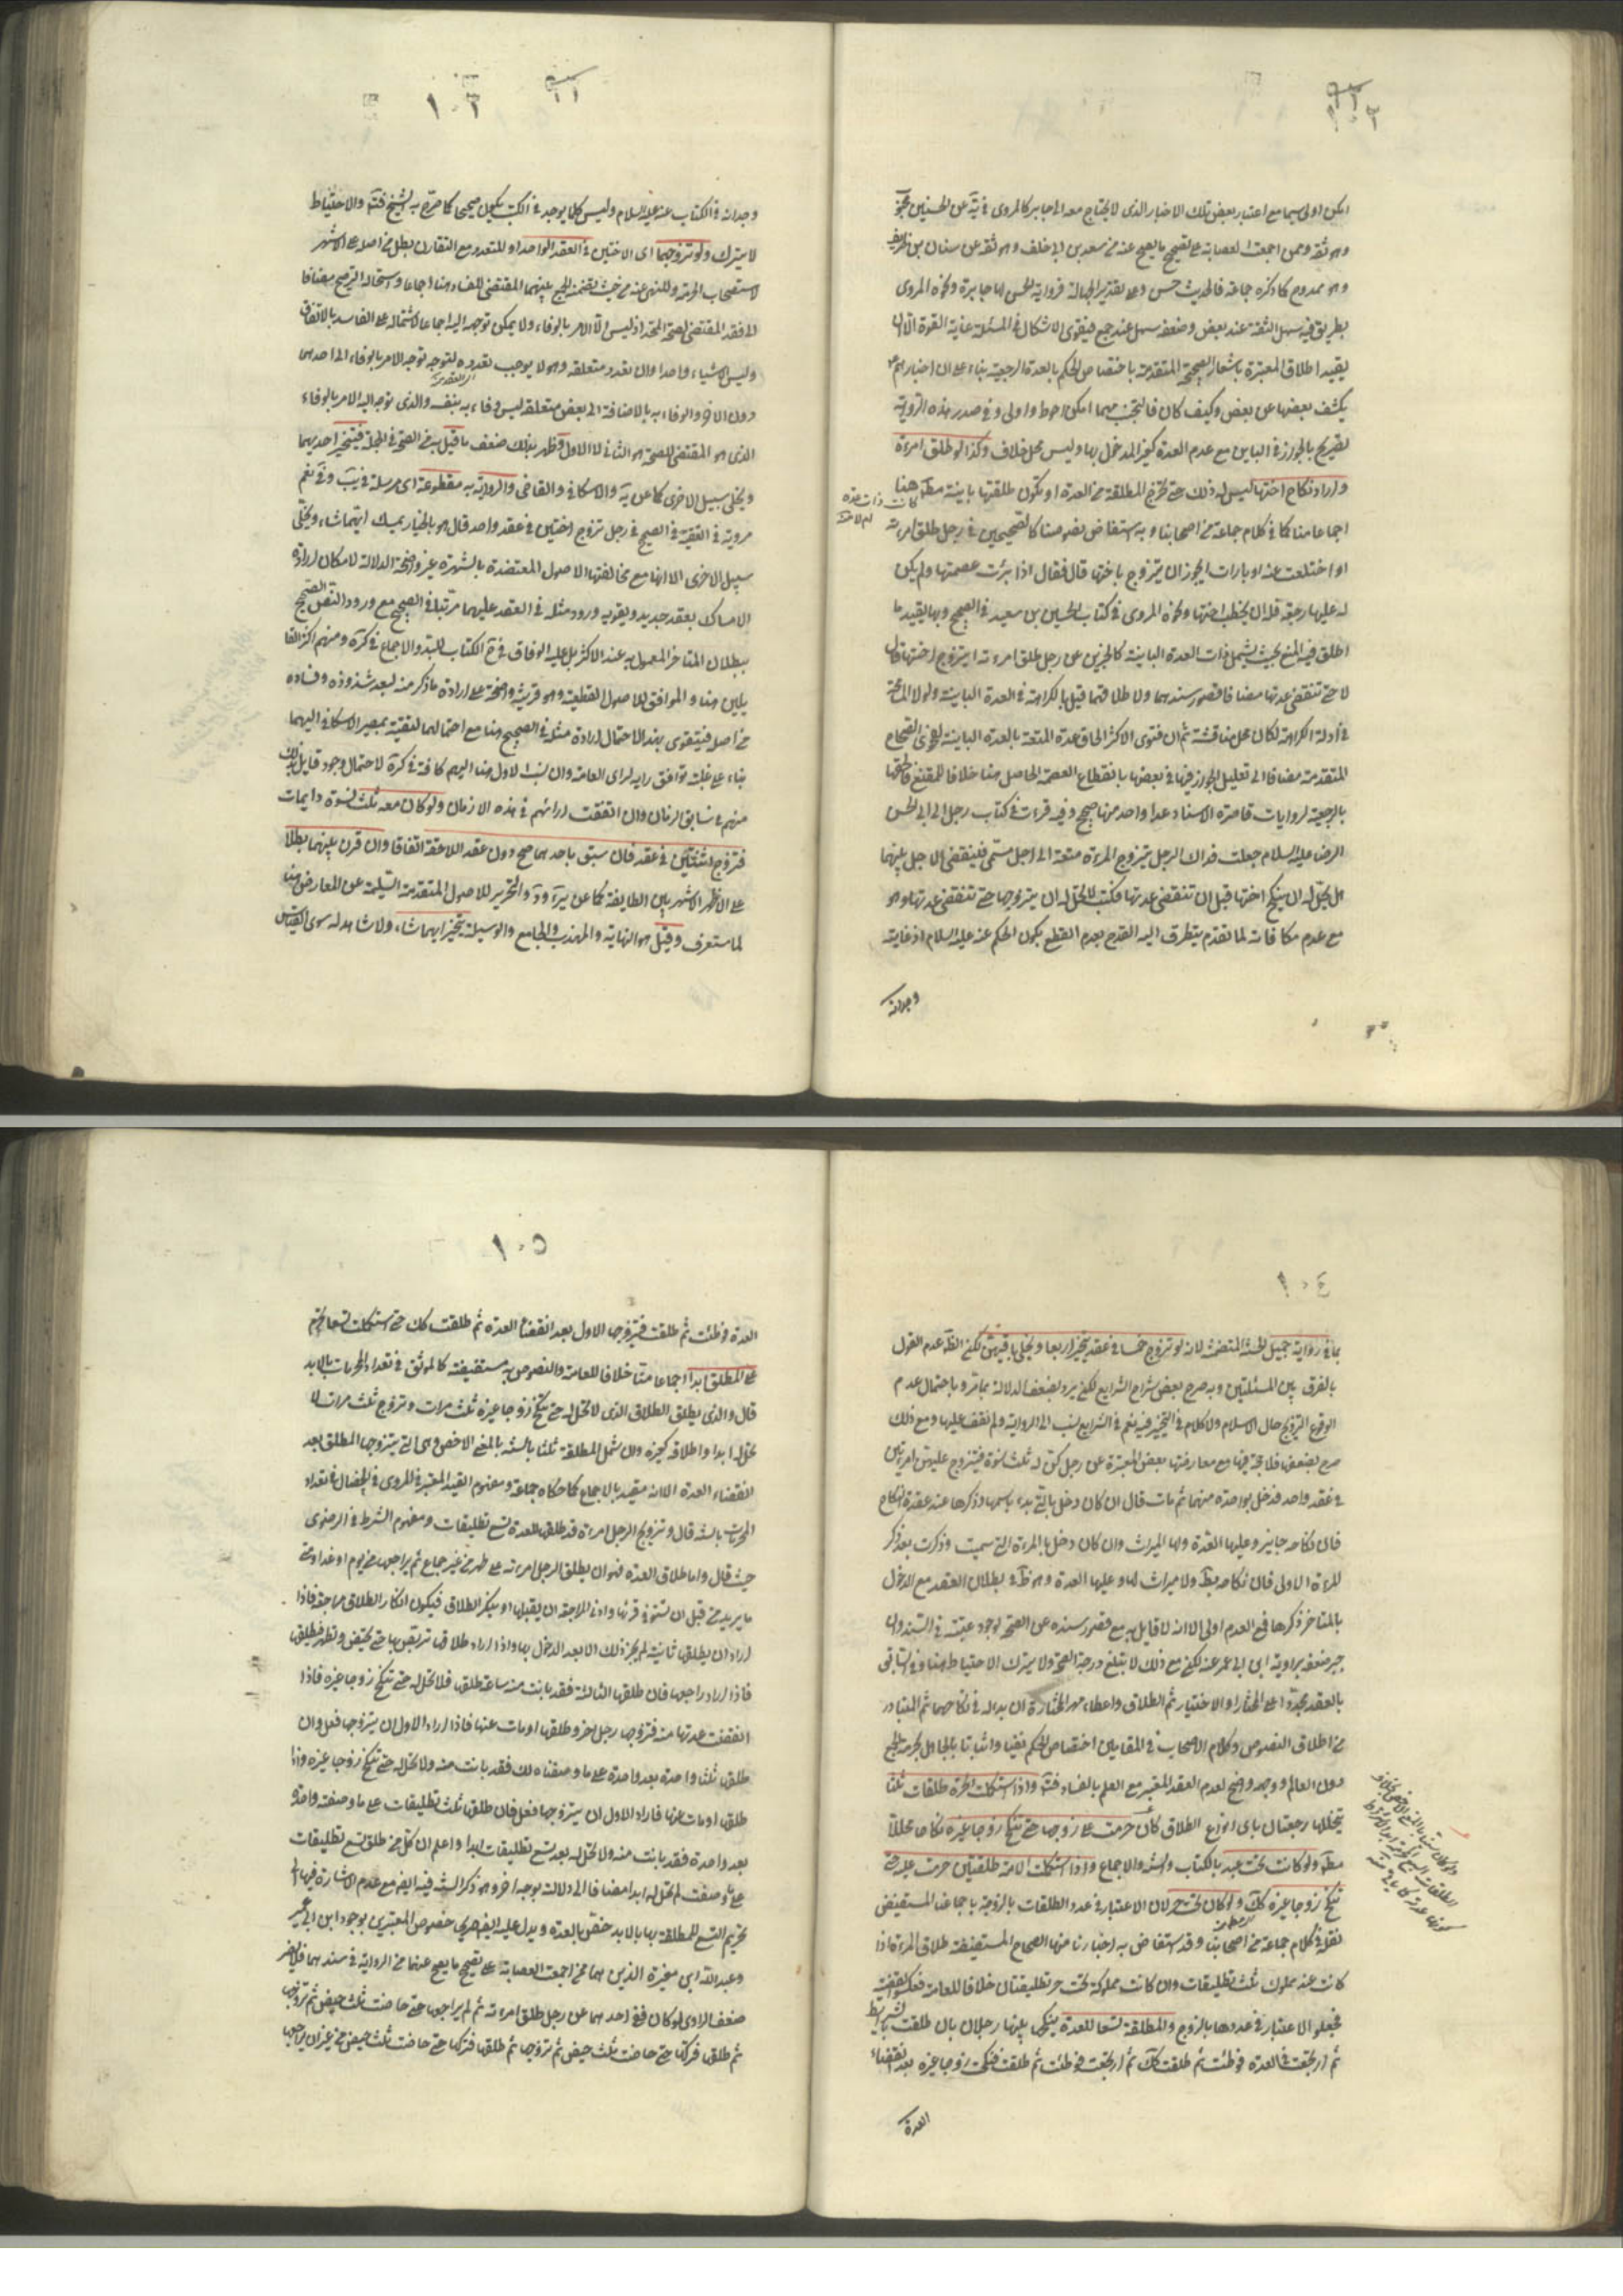 امكن اولى سيما مع اعتبار بعض تلك الاخبار الذى لا يحتاج معه الى جابر كالمروى فى عن الحسين
وهو ثقة وممن اجمعت العصابة على تصحيح ما يصح عنه عن سعد بن ابى خلف وهو ثقة عن سنان بن طريف
وهو ممدوح كما ذكره جماعة فالحديث حسن وعلى تقدير الجهالة فرواية الحسن لها جابرة ونحوه المروى
بطريق فيه سهل الثقة عند بعض وضعفه سهل عند جمع فيقوى الاشكال فى المسئلة غاية القوة الا ان
يقيد اطلاق المعتبرة باشعار الصحيحة المتقدمة باختصاص الحكم بالعدة الرجعية بناء على ان اخبارهم ع
يكشف بعضها عن بعض وكيف كان فالتجنب مهما امكن احوط واولى وفى صدر هذه الرواية
تصريح بالجواز فى الباين مع عدم العدة كغير المدخول بها وليس محل خلاف وكذا لو طلق امرءة
واراد نكاح اختها ليس له ذلك حتى تخرج المطلقة من العدة او تكون طلقتها باينة مط هنا
كانت ذات عدة
ام لا
اجماعا منا كما فى كلام جماعة من اصحابنا وبه استفاض نصوصنا كالصحيحين فى رجل طلق امرءته
او اختلعت عنه او بارات ايجوز ان يتزوج باختها قال فقال اذا برئت عصمتها ولم يكن
له عليها رجعة فله ان يخطب اختها ونحوه المروى فى كتاب الحسين بن سعيد فى الصحيح وبها يقيد ما
اطلق فيه المنع بحيث يشمل ذات العدة الباينة كالخبرين عن رجل طلق امرءته ايتزوج اختها قال
لا حتى تنقضى عدتها مضافا لقصور سندهما ولاطلاقهما قيل بالكراهة فى العدة الباينة ولولا المسامحة
فى ادلة الكراهة لكان محل مناقشة ثم ان فتوى الاكثر الحاق عدة المتعة بالعدة الباينة لفحوى الصحاح
المتقدمة مضافا الى تعليل الجواز فيها فى بعضها بانقطاع العصمة الحاصل هنا خلافا للمقنع فالحقها
بالرجعية لروايات قاصرة الاسناد عدا واحد منها صحيح وفيه قرءت فى كتاب رجل الى ابى الحسن
الرضا عليه السلام جعلت فداك الرجل يتزوج المرءة متعة الى اجل مسمى فينقضى الاجل بينهما
هل يحل له ان ينكح اختها قبل ان تنقضى عدتها فكتب لا يحل له ان يتزوجها حتى تنقضى عدتها وهو
مع عدم مكافاته لما تقدم يتطرق اليه القدح بعدم القطع بكون الحكم عنه عليه السلام اذ غايته
وجدانه
١٠٣
وجدانه فى الكتاب عنه عليه السلام وليس كلما يوجد فى الكتب يكون صحيحا كما صرح به الشيخ والاحتياط
لا يترك ولو تزوجهما اى الاختين فى العقد الواحد او المتعدد مع التقارن بطل من اصله على الاشهر
لاستصحاب الحرمة وللنهى عنه من حيث تضمنه الجمع بينهما المقتضى للفساد هنا اجماعا واستحالة الترجيح مضافا
الى فقد المقتضى لصحة المتحد اذ ليس الا الامر بالوفاء ولا يمكن توجهه اليه اجماعا لاشتماله على الفاسد بالاتفاق
وليس الا شيئا واحدا وان تعدد متعلقه وهو لا يوجب تعدده لتوجه توجه الامر بالوفاء الى احدهما
دون الاخر والوفاء به بالاضافة الى بعض متعلقه ليس وفاء به بنفسه والذى توجه اليه الامر بالوفاء
الذى هو المقتضى للصحة هو الثانى لا الاول وظهر بذلك ضعف ما قيل به من الصحة فى الجملة فيتخير احديهما
ويخلى سبيل الاخرى كما عن يه والاسكافى والقاضى والرواية به مقطوعة اى مرسلة فى يب وفى نعم
مروية فى الفقيه فى الصحيح فى رجل تزوج اختين فى عقد واحد قال هو بالخيار يمسك ايتهما شاء ويخلى
سبيل الاخرى الا انها مع مخالفتها الاصول المعتضدة بالشهرة غير واضحة الدلالة لامكان ارادة
الامساك بعقد جديد ويقويه ورود مثله فى العقد عليهما مرتبا فى الصحيح مع ورود النص الصحيح
ببطلان المتاخر المعمول به عند الاكثر بل عليه الوفاق فى الكتاب والاجماع فى كرة ومنهم اكثر القا
يلين هنا والموافق للاصول القطعية وهو قرينة واضحة على ارادة ما ذكر منه لبعد شذوذه وفساده
من اصله فيتقوى بهذا الاحتمال ارادة مثله فى الصحيح هنا مع احتمالهما للتقية بمصير الاسكافى اليهما
بناء على غلبة توافق رايه لراى العامة وان نسب الاول هنا اليهم كافة فى كرة لاحتمال وجود قايل بذلك
منهم فى سابق الزمان وان اتفقت اراءهم فى هذه الازمان ولو كان معه ثلث نسوة دايمات
فتزوج اثنتين فى عقد فان سبق باحدهما صح دون عقد اللاحقة اتفاقا وان قرن بينهما بطلا
على الاظهر الاشهر بين الطايفة كما عن والتحرير للاصول المتقدمة السليمة عن المعارض هنا
لما ستعرف وقيل هو النهاية والمهذب والجامع والوسيلة يتخير ايهما شاء ولا شاهد له سوى القياس
١٠٤
بما فى رواية جميل الحسنة المتضمنة لانه لو تزوج خمسا فى عقد يتخير اربعا ويخلى باقيهن لكن الظ عدم القول
بالفرق بين المسئلتين وبه صرح بعض شراح الشرايع لكن يرد بضعف الدلالة بما مر وباحتمال عدم
الوقوع التزويج حال الاسلام ولا كلام فى التخيير فيه نعم فى الشرايع نسب الى الرواية ولم نقف عليها ومع ذلك
صرح بضعفها فلا حجة فيها مع معارضتها بعض المعتبرة عن رجل كن له ثلث نسوة فيتزوج عليهن امرءتين
فى عقد واحد فدخل بواحدة منهما ثم مات قال ان كان دخل بالتى بدء باسمها وذكرها عند عقدة النكاح
فان نكاحه جايز وعليها العدة ولها الميراث وان كان دخل بالمرءة التى سميت وذكرت بعد ذكر
المرءة الاولى فان نكاحه بط ولا ميراث لها وعليها العدة وهو ظ فى بطلان العقد مع الدخول
بالمتاخر ذكرها فمع العدم اولى الا انه لا قايل به مع قصور سنده عن الصحة لوجود عنبسة فى السند وان
جبر ضعفه برواية ابن ابى عمير عنه لكن مع ذلك لا يبلغ درجة الصحة ولا يترك الاحتياط هنا وفى السابق
بالعقد مجددا على المختار او الاختيار ثم الطلاق واعطاء مهر المختارة ان بداله فى نكاحهما ثم المتبادر
من اطلاق النصوص وكلام الاصحاب فى المقامين اختصاص الحكم نفيا واثباتا بالجاهل بحرمة الجمع
دون العالم ووجهه واضح لعدم العقد المعتبر مع العلم بالفساد واذا استكملت الحرة طلقات ثلثا
يتخللها رجعتان باى انواع الطلاق كان حرمت على زوجها حتى تنكح زوجا غيره نكاحا محللا
مط ولو كانت تحت عبد بالكتاب والسنة والاجماع واذا استكملت الامة طلقتين حرمت عليه حتى
تنكح زوجا غيره كك ولو كان تحت حر لان الاعتبار فى عدد الطلقات بالزوجة باجماعنا المستفيض
نقله فى كلام جماعة من اصحابنا وقد استفاض به اخبارنا منها الصحاح المستفيضة طلاق المرءة اذا
كانت عند مملوك ثلث تطليقات وان كانت مملوكة تحت حر تطليقتان خلافا للعامة فعكسوا القضية
فجعلوا الاعتبار فى عددها بالزوج والمطلقة تسعا للعدة ينكحها بينها رجلان بان طلقت بالشرايط
ثم ارتجعت فى العدة فوطئت ثم طلقت كك ثم ارتجعت فوطئت ثم طلقت فنكحت زوجا غيره بعد انقضاء
العدة
١٠٥
العدة فوطئت ثم طلقت فتزوجها الاول بعد انقضاء العدة ثم طلقت كك حتى استكملت تسعا تحرم
على المطلق ابدا اجماعا منا خلافا للعامة والنصوص به مستفيضة كالموثق فى تعداد المحرمات بالابد
قال والذى يطلق الطلاق الذى لا تحل له حتى تنكح زوجا غيره ثلث مرات وتزوج ثلث مرات لا
تحل له ابدا واطلاقه كغيره وان شمل المطلقة ثلثا بالسنة بالمعنى الاخص وهى التى يتزوجها المطلق بعد
انقضاء العدة الا انه مقيد بالاجماع كما حكاه جماعة ومفهوم القيد المعتبر فى المروى فى الخصال فى تعداد
المحرمات بالسنة قال وتزويج الرجل امرءة قد طلقها للعدة تسع تطليقات ومفهوم الشرط فى الرضوى
حيث قال واما طلاق العدة فهو ان يطلق الرجل امرءته على طهر من غير جماع ثم يراجعها من يوم او غد او متى
ما يريد من قبل ان تستوفى قرئها وادنى المراجعة ان يقبلها او ينكر الطلاق فيكون انكار الطلاق مراجعة فاذا
اراد ان يطلقها ثانية لم يجز ذلك الا بعد الدخول بها واذا اراد طلاقها تربص بها حتى تحيض وتطهر فيطلقها
فاذا اراد راجعها فان طلقها الثالثة فقد بانت منه ساعة طلقها فلا تحل له حتى تنكح زوجا غيره فاذا
انقضت عدتها منه فتزوجها رجل اخر وطلقها او مات عنها فاذا اراد الاول ان يتزوجها فعل وان
طلقها ثلثا واحدة بعد واحدة على ما وصفناه لك فقد بانت منه ولا تحل له حتى تنكح زوجا غيره واذا
طلقها او مات عنها فاراد الاول ان يتزوجها فعل فان طلقها ثلث تطليقات على ما وصفته واحدة
بعد واحدة فقد بانت منه ولا تحل له بعد تسع تطليقات ابدا واعلم ان كل من طلق تسع تطليقات
على ما وصفت لم تحل له ابدا مضافا الى دلالته بوجه اخر وهو ذكر السنة فيه ايضا مع عدم الاشارة فيها الى
تحريم التسع للمطلقة بها بالابد خص بالعدة ويدل عليه ايضا فحوى خصوص المعتبرين بوجود ابن ابى عمير
وعبد الله ابن مغيرة الذين هما ممن اجمعت العصابة على تصحيح ما يصح عنهما من الرواية فى سندهما فلا يضر
ضعف الراوى لو كان ففى احدهما عن رجل طلق امرءته ثم لم يراجعها حتى حاضت ثلث حيض ثم تزوجها
ثم طلقها فتركها حتى حاضت ثلث حيض ثم تزوجها ثم طلقها فتركها حتى حاضت ثلث حيض من غير ان يراجعها